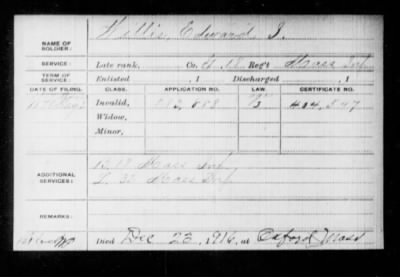 NAME OF SOLDIER: Willis, Edward J.
SERVICE: Late rank, Co. Reg't Mass Inf.
TERM OF SERVICE: Enlisted , 1 Discharged , 1
DATE OF FILING. CLASS. APPLICATION NO. LAW. CERTIFICATE NO.
Invalid, 414,547
Widow,
Minor,
ADDITIONAL SERVICES: Mass Inf
Mass Inf
REMARKS:
Died Dec 23, 1916, at Oxford Mass